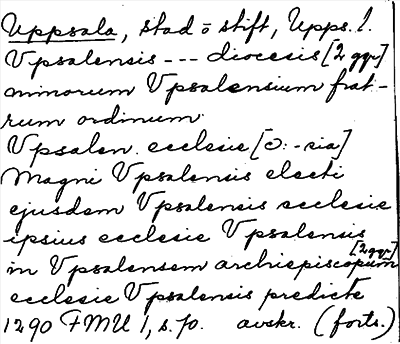 Uppsala, stad o stift, Upps. l.
Vpsalensis --- diocesis [2 ggr]
minorum Vpsalensium frat-
rum ordinum
Vpsalen. ecclesie [ɔ: -sia]
Magni Vpsalensis electi
ejusdem Vpsalensis ecclesie
ipsius ecclesie Vpsalensis
in Vpsalensem archiepiscopum [2 ggr]
ecclesie Vpsalensis predicte
1290 FMU 1, s. 70. avskr. (forts.)